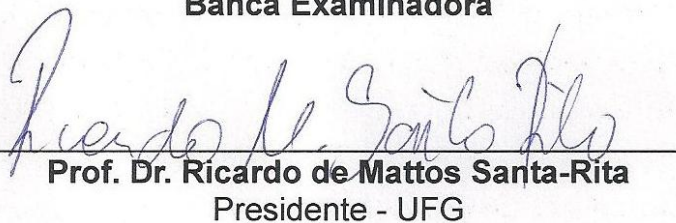 Banca Examinadora
Ricardo M. Santa Rita
Prof. Dr. Ricardo de Mattos Santa-Rita
Presidente - UFG